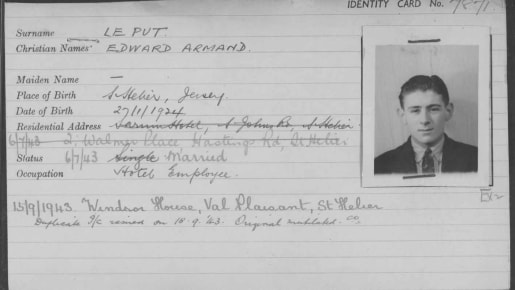 IDENTITY CARD No.
Surname LE PUT
Christian Names EDWARD ARMAND.
Maiden Name —
Place of Birth St Helier, Jersey
Date of Birth 27/1/1924
Residential Address Sarum Hotel, St Johns Rd, St Helier
6/7/43 2, Walmer Place Hastings Rd, St Helier
Status 6/7/43 Single Married
Occupation Hotel Employee.
15/9/1943. Windsor House, Val Plaisant, St Helier
Duplicate I/c issued on 15.9.43. Original mutilated.